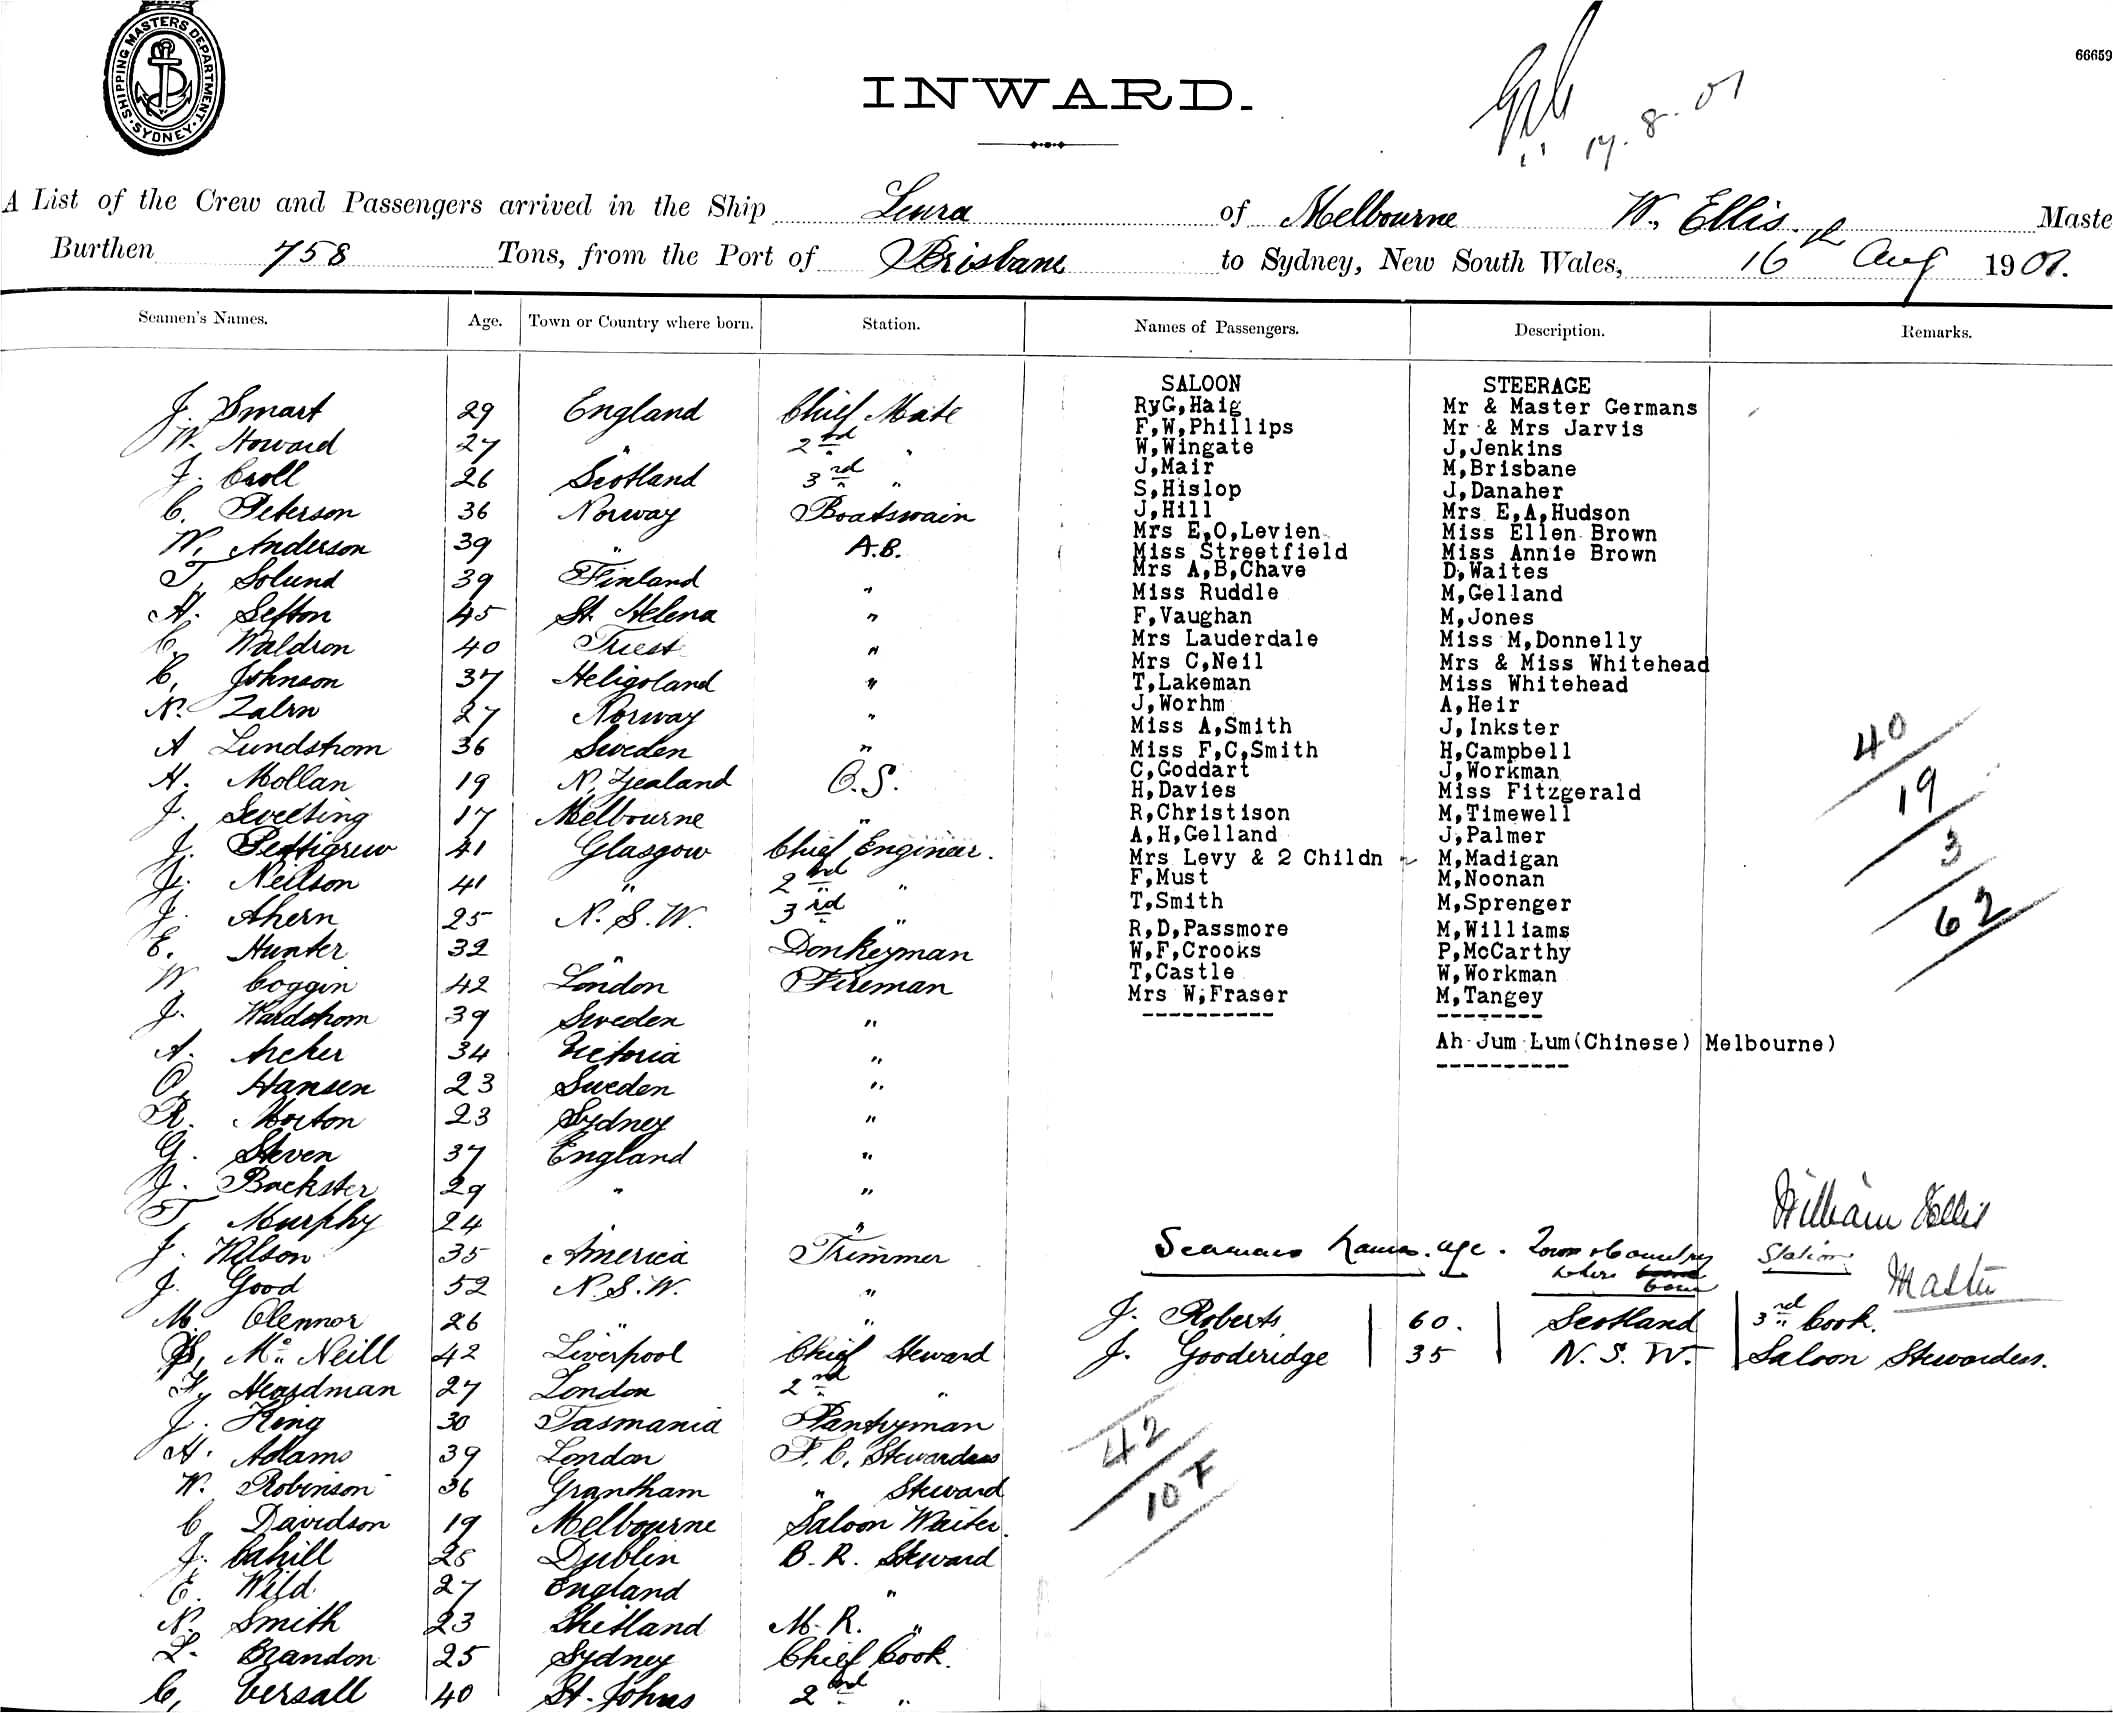 SHIPPING MASTERS DEPARTMENT. SYDNEY.
66659
INWARD.
17. 8. 01
A List of the Crew and Passengers arrived in the Ship Leura of Melbourne W. Ellis. Maste
Burthen 758 Tons, from the Port of Brisbane to Sydney, New South Wales, 16th Aug 1901.
Seamen's Names. Age. Town or Country where born. Station. Names of Passengers. Description. Remarks.
J. Smart 29 England Chief Mate
W. Howard 27 " 2nd "
J. Croll 26 Scotland 3rd "
C. Peterson 36 Norway Boatswain
W. Anderson 39 " A.B.
T. Solund 39 Finland "
H. Sefton 45 St. Helena "
C. Waldron 40 Triest "
C. Johnson 37 Heligoland "
N. Zalrn 27 Norway "
A Lundstrom 36 Sweden "
H. Mollan 19 N. Zealand O.S.
J. Sweeting 17 Melbourne "
J. Pettigrew 41 Glasgow Chief Engineer.
J. Neilson 41 " 2nd "
J. Ahern 25 N.S.W. 3rd "
E. Hunter 32 " Donkeyman
W. Coggin 42 London Fireman
J. Wardstrom 39 Sweden "
A. Archer 34 Victoria "
O. Hansen 23 Sweden "
R. Morton 23 Sydney "
G. Steven 37 England "
J. Backster 29 " "
T. Murphy 24 " "
J. Wilson 35 America Trimmer
J. Good 52 N.S.W. "
M. Olennor 26 " "
Mc Neill 42 Liverpool Chief Steward
Heardman 27 London 2nd "
J. King 30 Tasmania Pantryman
A. Adams 39 London F.C. Stewardess
W. Robinson 36 Grantham " Steward
C. Davidson 19 Melbourne Saloon Waiter.
J. Cahill 25 Dublin B.R. Steward
E. Wild 27 England "
N. Smith 23 Shetland M.R. "
L. Brandon 25 Sydney Chief Cook.
C. Versall 40 St. Johns 2nd "
SALOON
RyG,Haig
F,W,Phillips
W,Wingate
J,Mair
S,Hislop
J,Hill
Mrs E,O,Levien
Miss Streetfield
Mrs A,B,Chave
Miss Ruddle
F,Vaughan
Mrs Lauderdale
Mrs C,Neil
T,Lakeman
J,Worhm
Miss A,Smith
Miss F,C,Smith
C,Goddart
H,Davies
R,Christison
A,H,Gelland
Mrs Levy & 2 Childn
F,Must
T,Smith
R,D,Passmore
W,F,Crooks
T,Castle
Mrs W;Fraser
----------
STEERAGE
Mr & Master Germans
Mr & Mrs Jarvis
J,Jenkins
M,Brisbane
J,Danaher
Mrs E,A,Hudson
Miss Ellen Brown
Miss Annie Brown
D,Waites
M,Gelland
M,Jones
Miss M,Donnelly
Mrs & Miss Whitehead
Miss Whitehead
A,Heir
J,Inkster
H,Campbell
J,Workman
Miss Fitzgerald
M,Timewell
J,Palmer
M,Madigan
M,Noonan
M,Sprenger
M,Williams
P,McCarthy
W,Workman
M,Tangey
--------
Ah Jum Lum(Chinese) Melbourne)
----------
40
19
3
62
William Ellis
Master
Seamans Name. age. Town or Country where born Station
J. Roberts 60. Scotland 3rd Cook.
J. Gooderidge 35 N.S.W. Saloon Stewardess.
42
107